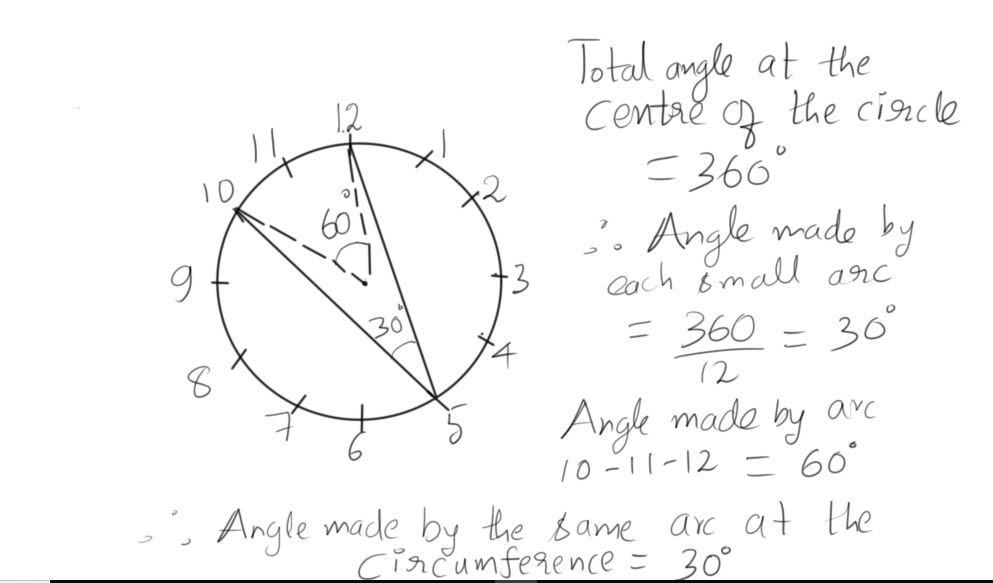 12
11
1
10
2
60°
9
3
30°
4
8
7
5
6
Total angle at the
centre of the circle
= 360°
∴ Angle made by
each small arc
= 360/12 = 30°
Angle made by arc
10-11-12 = 60°
∴ Angle made by the same arc at the
circumference = 30°